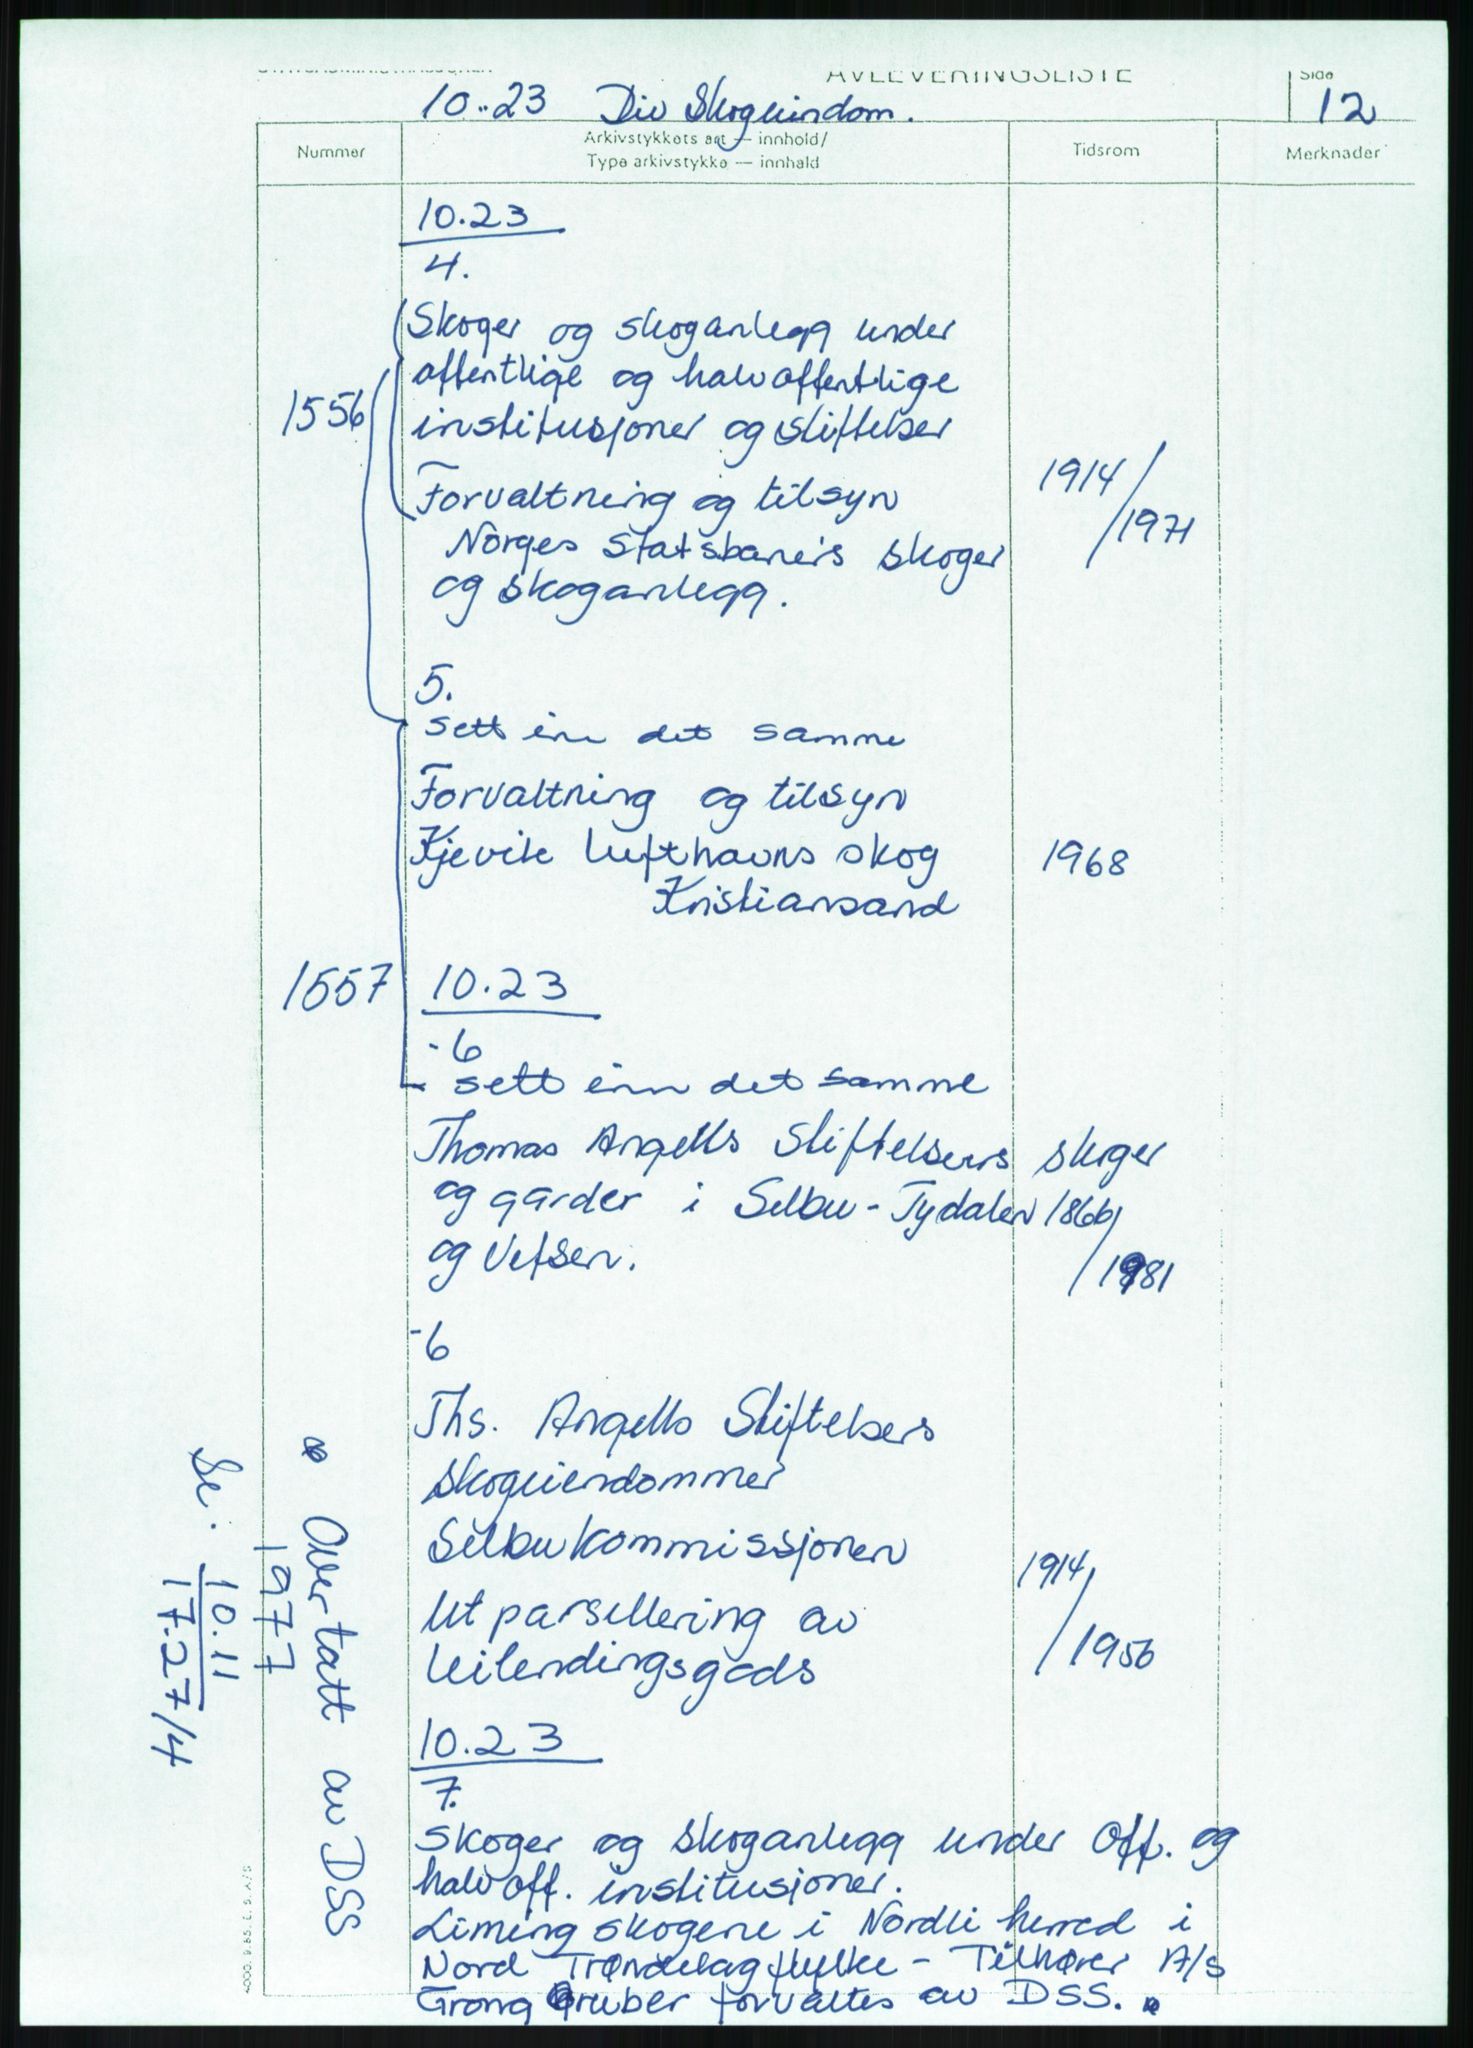 AVLEVERINGSLISTE
Side
12
10..23 Div Skogeiendom.
Nummer
Arkivstykkets art — innhold/
Type arkivstykke — innhald
Tidsrom
Merknader
10.23
4.
Skoger og skoganlegg under
offentlige og halvoffentlige
1556
institusjoner og stiftelser
Forvaltning og tilsyn
1914/1971
Norges Statsbaners skoger
og skoganlegg.
5.
sett inn det samme
Forvaltning og tilsyn
Kjevik lufthavns skog 1968
Kristiansand
1557
10.23
-6
sett inn det samme
Thomas Angells Stiftelsers skoger
og garder i Selbu - Tydalen 1866/
og Vefsen. /1981
-6
Ths. Angells Stiftelsers
skogeiendommer
Selbukommissjonen
1914/
Utparsellering av
leilendingsgods /1956
10.23
7.
Skoger og skoganlegg under Off. og
halvoff. institusjoner.
Limingskogene i Nordli herred i
Nord Trøndelag fylke - Tilhører A/s
Grong Gruber forvaltes av DSS.
Overtatt av DSS
1977
Se: 10.11
17.27/4